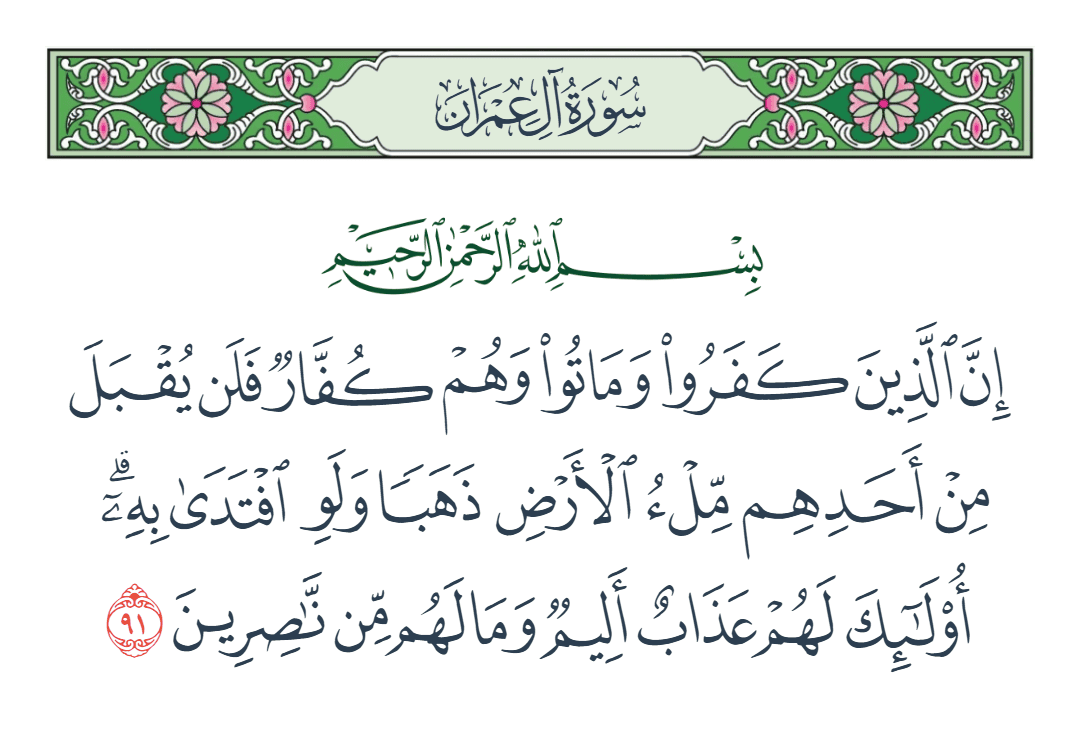 سُورَةُ آلِ عِمْرَانَ
بِسْمِ ٱللَّهِ ٱلرَّحْمَٰنِ ٱلرَّحِيمِ
إِنَّ ٱلَّذِينَ كَفَرُوا۟ وَمَاتُوا۟ وَهُمْ كُفَّارٌ فَلَن يُقْبَلَ
مِنْ أَحَدِهِم مِّلْءُ ٱلْأَرْضِ ذَهَبًا وَلَوِ ٱفْتَدَىٰ بِهِۦٓ ۗ
أُو۟لَٰٓئِكَ لَهُمْ عَذَابٌ أَلِيمٌ وَمَا لَهُم مِّن نَّٰصِرِينَ ٩١